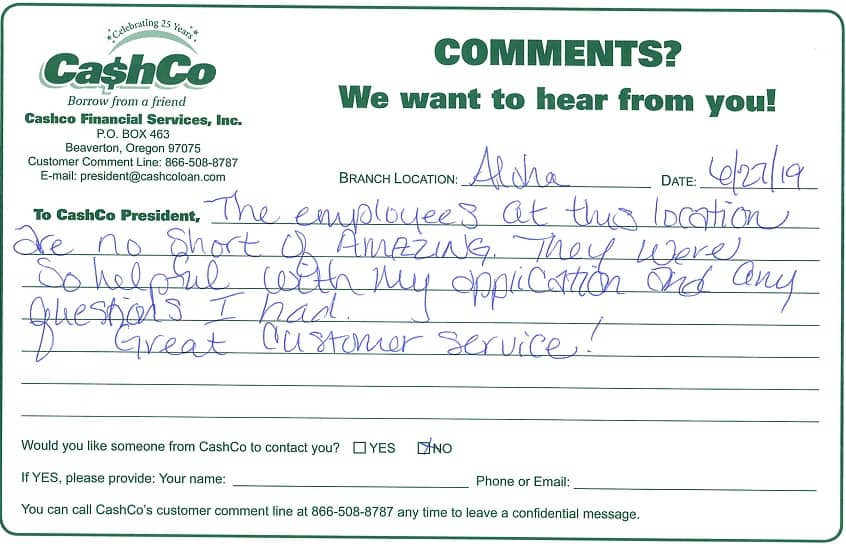 Celebrating 25 Years
Ca$hCo
Borrow from a friend
Cashco Financial Services, Inc.
P.O. BOX 463
Beaverton, Oregon 97075
Customer Comment Line: 866-508-8787
E-mail: president@cashcoloan.com
COMMENTS?
We want to hear from you!
BRANCH LOCATION: Aloha DATE: 6/27/19
To CashCo President, The employees at this location
are no short of AMAZING. They were
so helpful with my application and any
questions I had.
Great Customer service!
Would you like someone from CashCo to contact you? YES NO
If YES, please provide: Your name: Phone or Email:
You can call CashCo's customer comment line at 866-508-8787 any time to leave a confidential message.